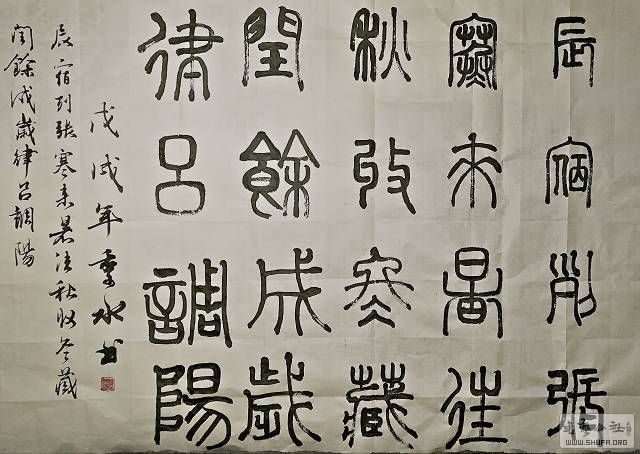 辰宿列張
寒来暑往
秋收冬藏
閏餘成歲
律呂調陽
戊戌年 水书
辰宿列張寒来暑往秋收冬藏
閏餘成歲律呂調陽
公社
WWW.SHUFA.ORG